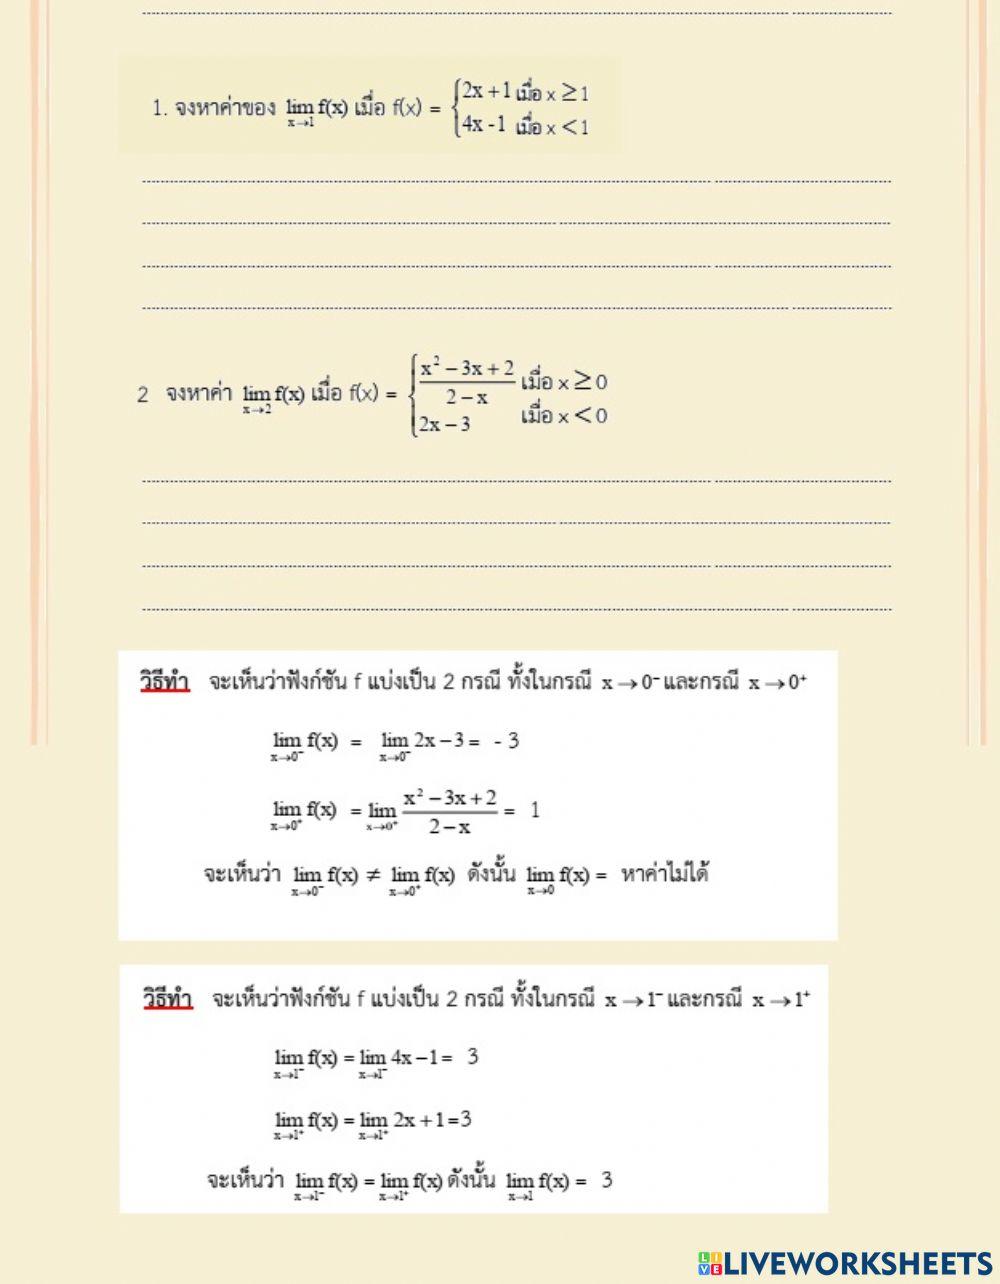 1. จงหาค่าของ lim x→1 f(x) เมื่อ f(x) = { 2x + 1 เมื่อ x ≥ 1
4x - 1 เมื่อ x < 1
2 จงหาค่า lim x→2 f(x) เมื่อ f(x) = { (x² − 3x + 2)/(2 − x) เมื่อ x ≥ 0
2x − 3 เมื่อ x < 0
วิธีทำ จะเห็นว่าฟังก์ชัน f แบ่งเป็น 2 กรณี ทั้งในกรณี x → 0⁻ และกรณี x → 0⁺
lim x→0⁻ f(x) = lim x→0⁻ 2x − 3 = - 3
lim x→0⁺ f(x) = lim x→0⁺ (x² − 3x + 2)/(2 − x) = 1
จะเห็นว่า lim x→0⁻ f(x) ≠ lim x→0⁺ f(x) ดังนั้น lim x→0 f(x) = หาค่าไม่ได้
วิธีทำ จะเห็นว่าฟังก์ชัน f แบ่งเป็น 2 กรณี ทั้งในกรณี x → 1⁻ และกรณี x → 1⁺
lim x→1⁻ f(x) = lim x→1⁻ 4x − 1 = 3
lim x→1⁺ f(x) = lim x→1⁺ 2x + 1 = 3
จะเห็นว่า lim x→1⁻ f(x) = lim x→1⁺ f(x) ดังนั้น lim x→1 f(x) = 3
LIVE LIVEWORKSHEETS